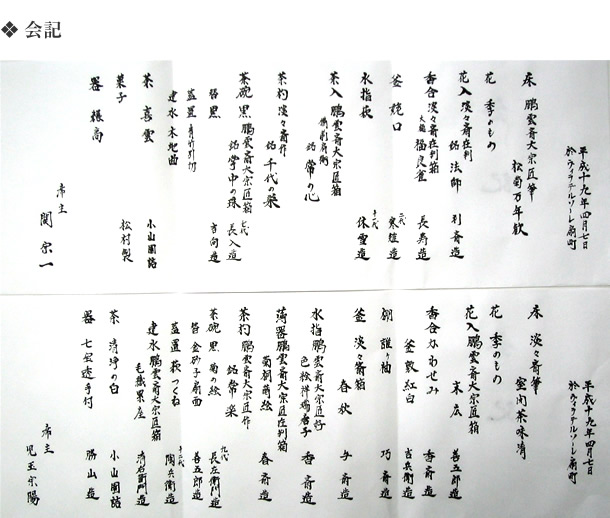 ❖ 会記
平成十九年四月七日
於 ヴィラテルソーレ扇町
床 鵬雲斎大宗匠筆
松菊万年歓
花 季のもの
花入 淡々斎在判
銘 法師 利斎造
香合 淡々斎在判箱
福良雀 長寿造
釜 競口
二代 寒雉造
水指 萩
十二代 休雪造
茶入 鵬雲斎大宗匠箱
銘 常の心
茶杓 淡々斎作
銘 千代の栄
茶碗 黒 鵬雲斎大宗匠箱
銘 掌中の珠 七代 長入造
替 黒 吉向造
蓋置 青竹引切
建水 木地曲
茶 喜雲 小山園詰
菓子 松村製
器 模高
席主
関 宗一
平成十九年四月七日
於 ヴィラテルソーレ扇町
床 淡々斎筆
室閑茶味清
花 季のもの
花入 鵬雲斎大宗匠箱
末広 善五郎造
香合 かわせみ 香斎造
釜敷 紅白 吉兵衛造
棚 誰ヶ袖 巧斎造
釜 淡々斎箱
春秋 与斎造
水指 鵬雲斎大宗匠好
香斎造
薄器 鵬雲斎大宗匠在判箱
菊桐蒔絵 春斎造
茶杓 鵬雲斎大宗匠作
銘 常楽
茶碗 黒 菊の絵 九代 長左衛門造
替 金砂子扇面 善五郎造
蓋置 萩つくね 十二代 陶兵衛造
建水 鵬雲斎大宗匠箱
毛織累座 清右衛門造
茶 清浄の白 小山園詰
器 七宝透手付 勝山造
席主
児玉宗陽